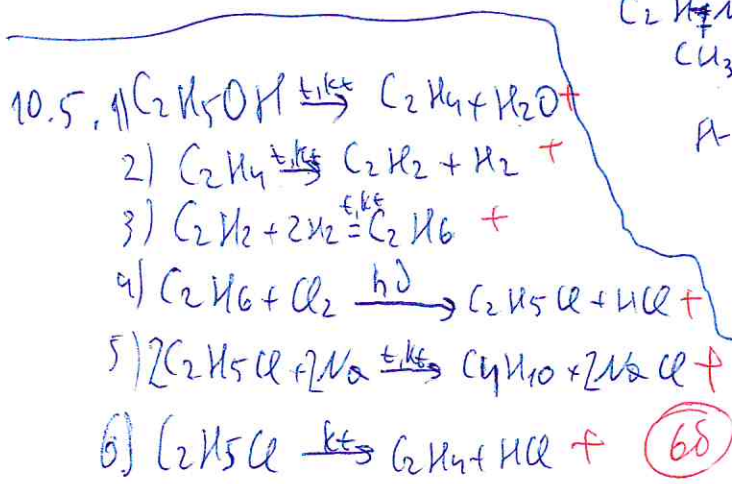 C2H4+
CH3
A-
10.5. 1) C2H5OH t,kt→ C2H4 + H2O +
2) C2H4 t,kt→ C2H2 + H2 +
3) C2H2 + 2H2 t,kt= C2H6 +
4) C2H6 + Cl2 hν→ C2H5Cl + HCl +
5) 2C2H5Cl + 2Na t,kt→ C4H10 + 2NaCl +
6) C2H5Cl kt→ C2H4 + HCl + 6б